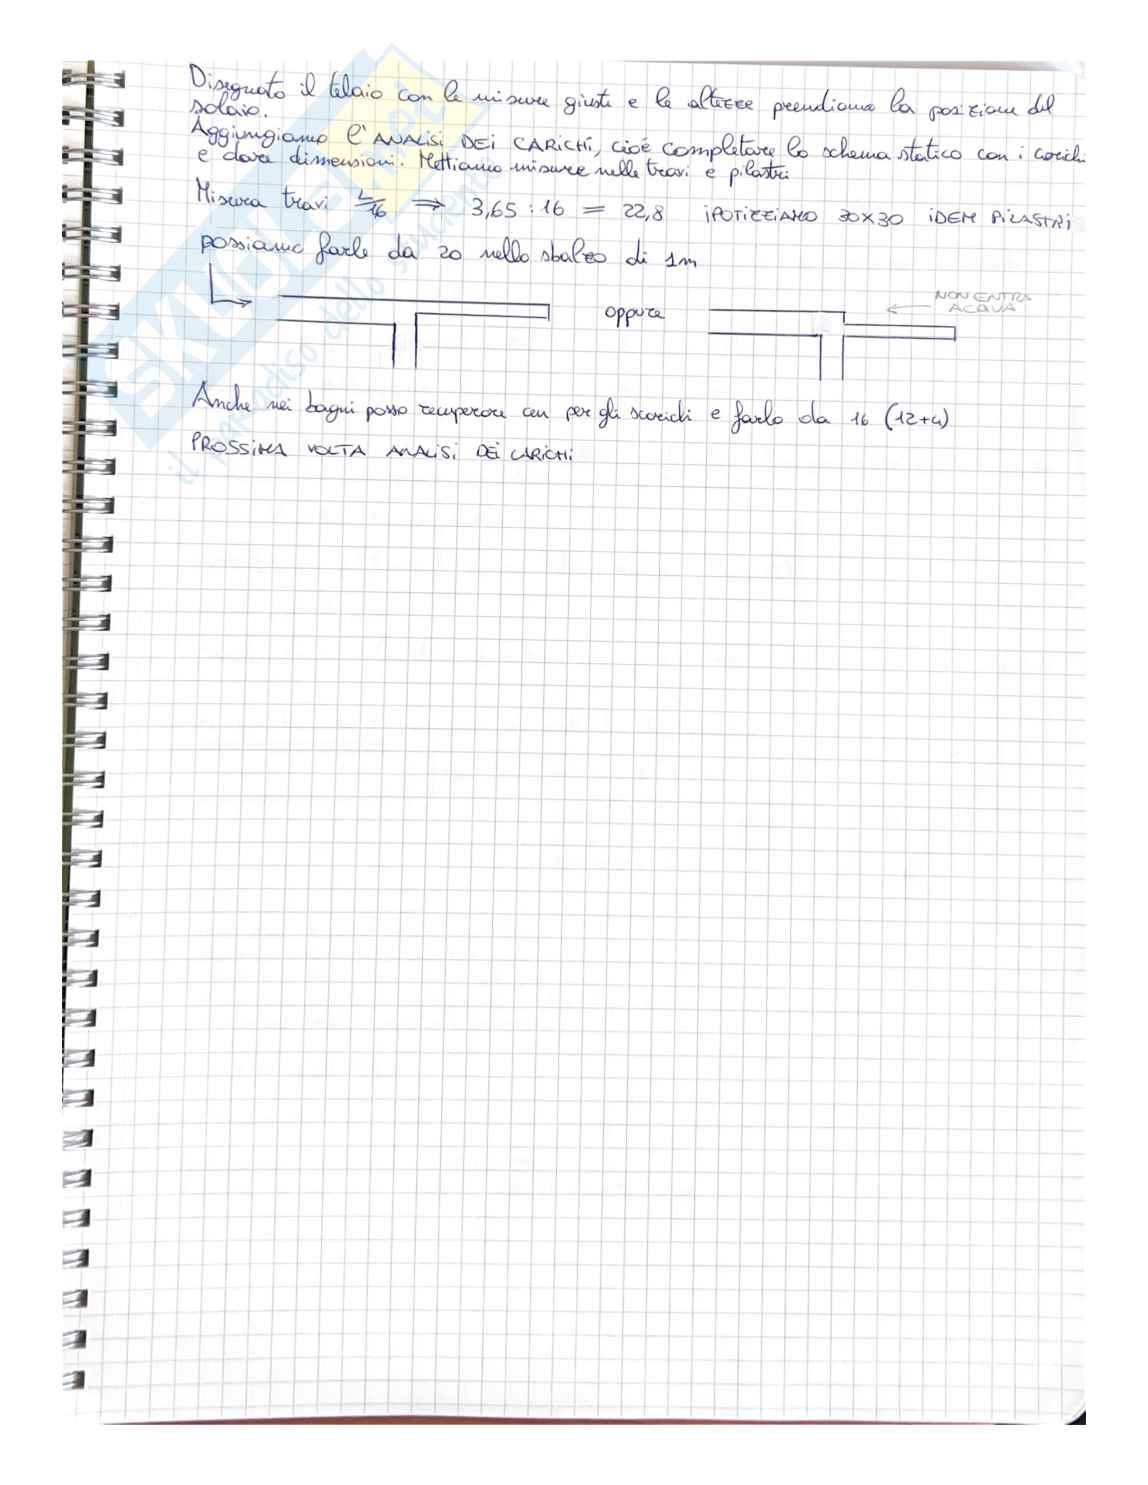 Disegnato il telaio con le misure giuste e le altezze prendiamo la posizione del
solaio.
Aggiungiamo l'ANALISI DEI CARICHI, cioè completare lo schema statico con i carichi
e dare dimensioni. Mettiamo misure nelle travi e pilastri
Misura travi L/16 ⇒ 3,65 : 16 = 22,8 iPOTIZZIAMO 30x30 iDEM PILASTRi
possiamo farle da 20 nello sbalzo di 1m
oppure
NON ENTRA
ACQUA
Anche nei bagni posso recuperare cm per gli scarichi e farlo da 16 (12+4)
PROSSIMA VOLTA ANALiSi DEi CARiCHi
SKUOLA.net
il paradiso dello studente